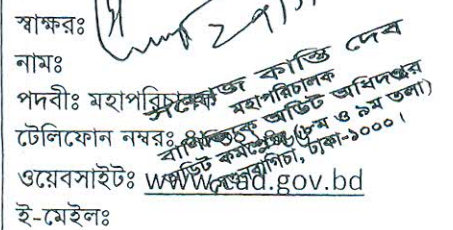 স্বাক্ষরঃ
নামঃ
পদবীঃ মহাপরিচালক
টেলিফোন নম্বরঃ
ওয়েবসাইটঃ www.cad.gov.bd
ই-মেইলঃ
কান্তি দেব
মহাপরিচালক
বাণিজ্যিক অডিট অধিদপ্তর
অডিট কমপ্লেক্স (৮ম ও ৯ম তলা)
সেগুনবাগিচা, ঢাকা-১০০০।